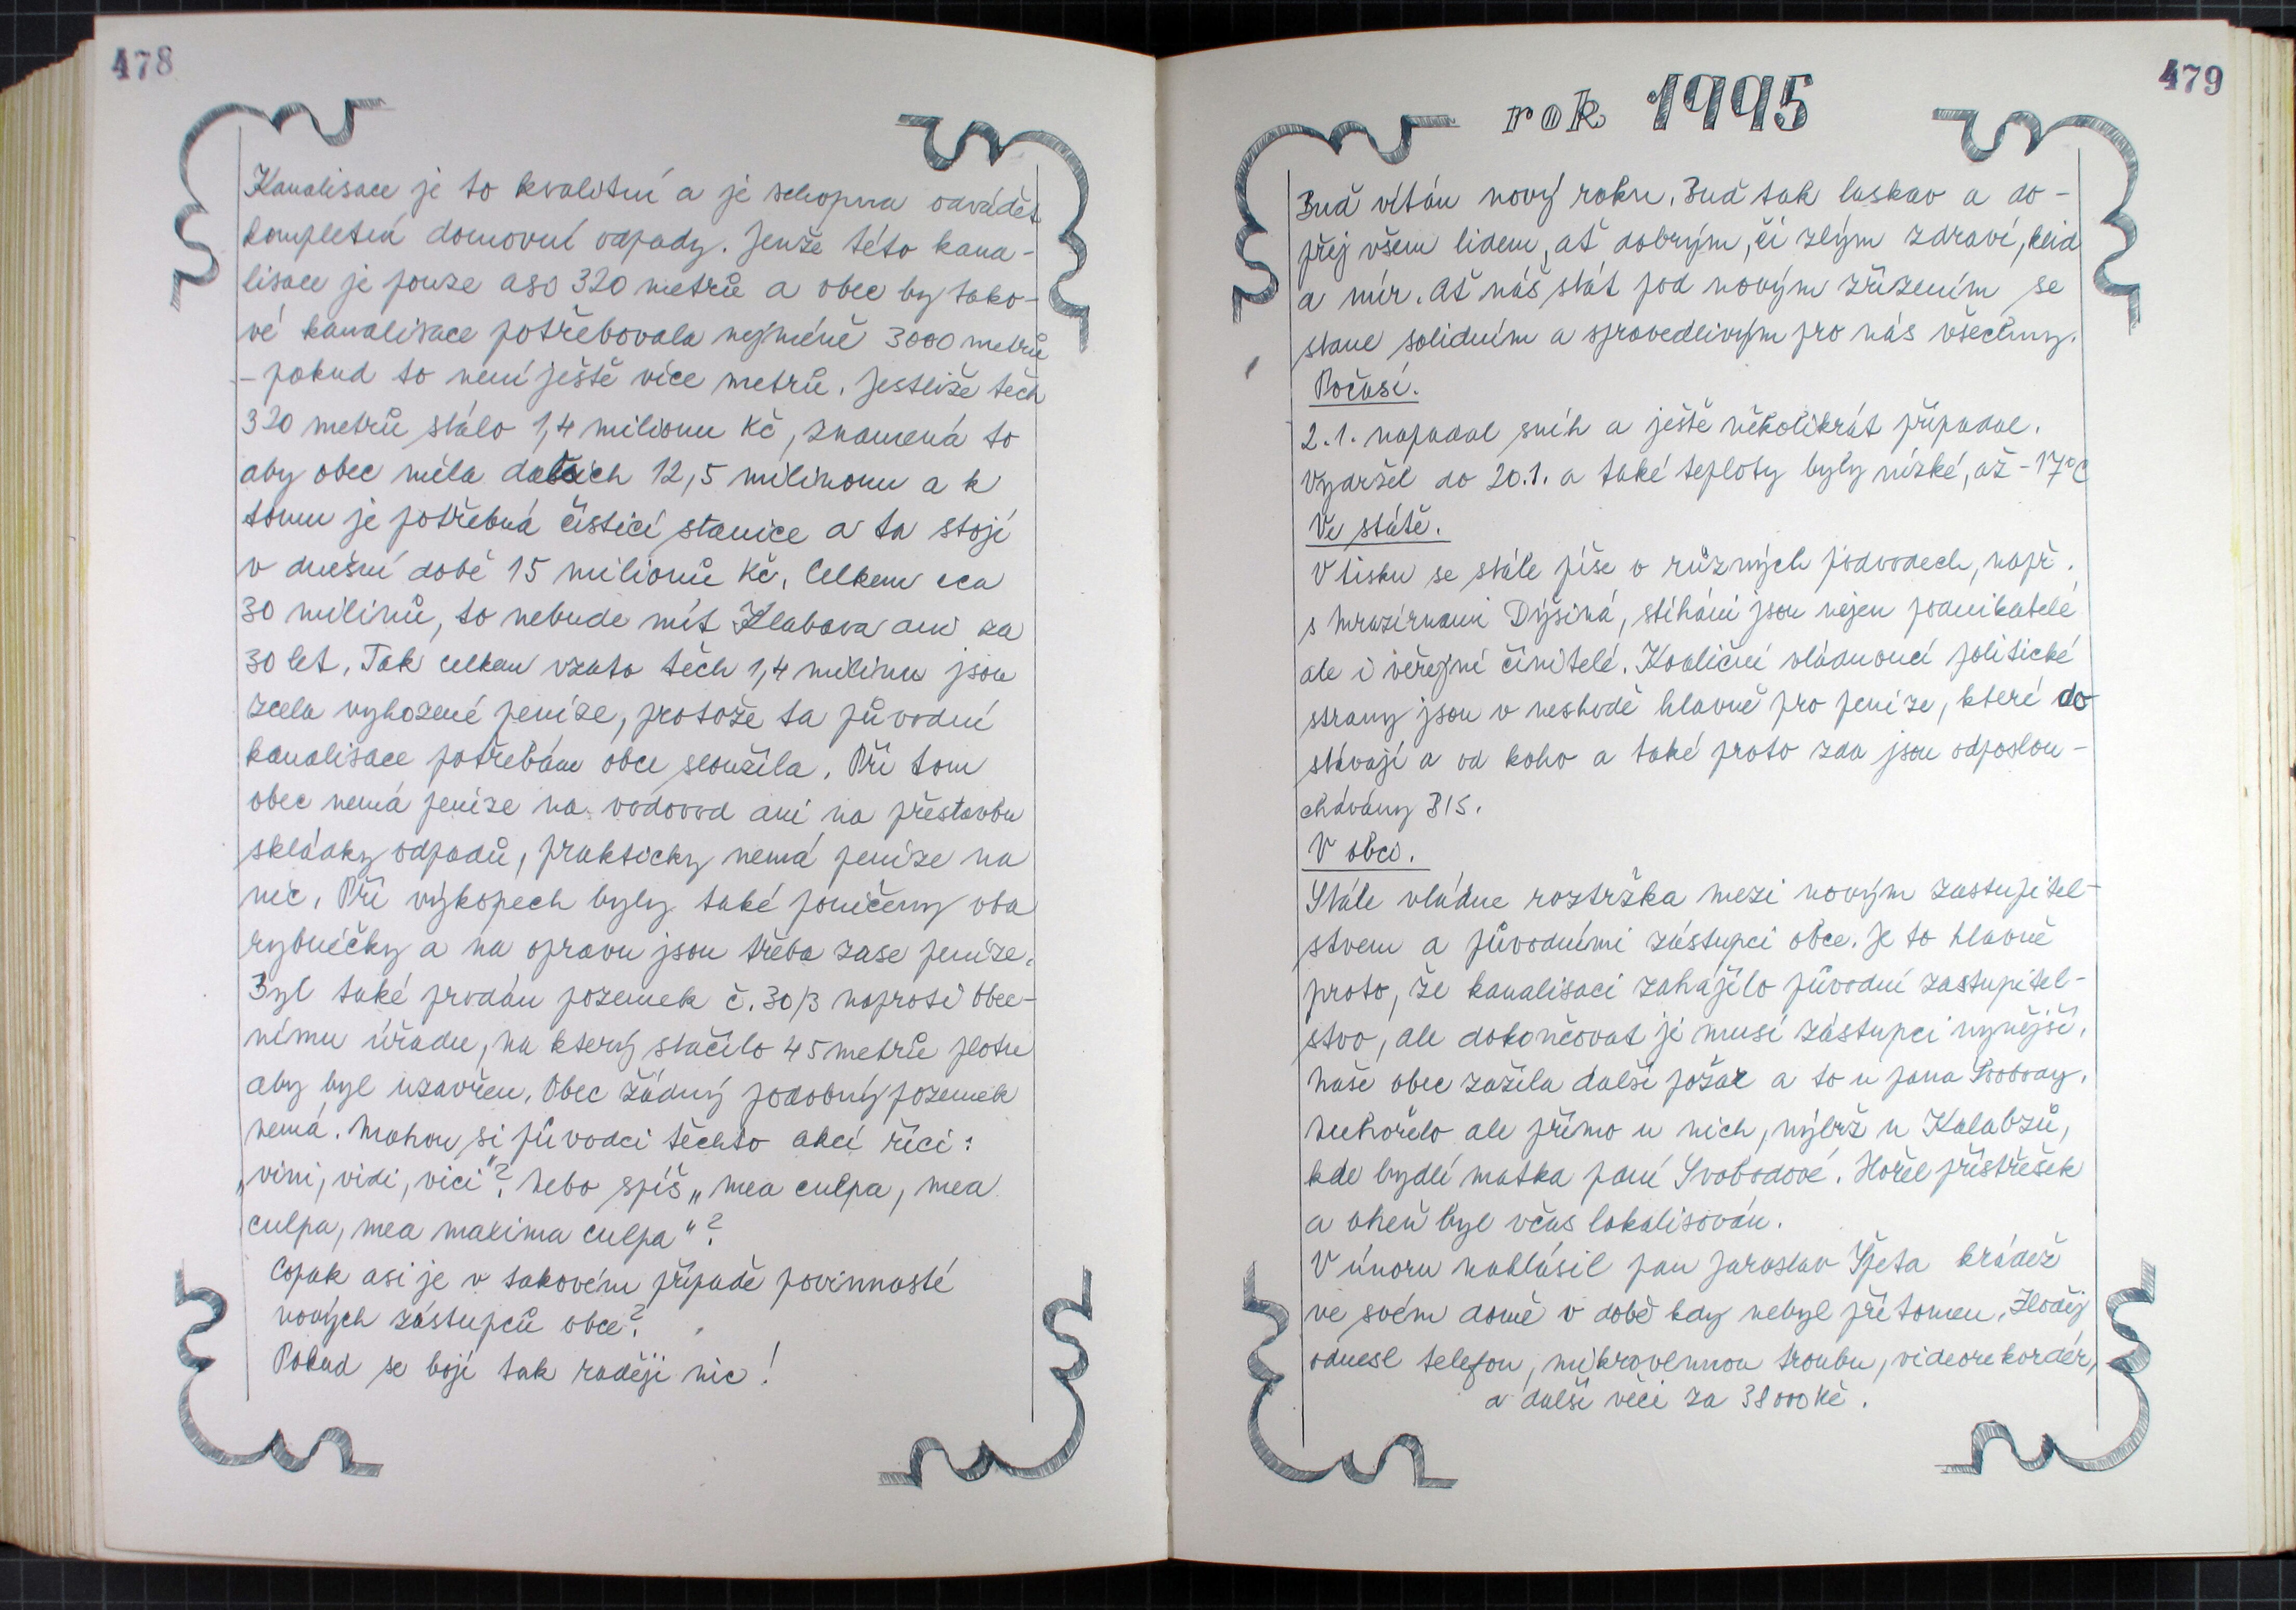 478
Kanalisace je to kvalitní a je schopna odvádět
kompletní domovní odpady. Jenže této kana-
lisace je pouze asi 320 metrů a obec by tako-
vé kanalisace potřebovala nejméně 3000 metrů
- pokud to není ještě více metrů. Jestliže těch
320 metrů stálo 1,4 milionu Kč, znamená to
aby obec měla dalších 12,5 milinonu a k
tomu je potřebná čisticí stanice a ta stojí
v dnešní době 15 milionů Kč. Celkem cca
30 milinů, to nebude mít Klabava ani za
30 let. Tak celkem vzato těch 1,4 milinu jsou
zcela vyhozené peníze, protože ta původní
kanalisace potřebám obce sloužila. Při tom
obec nemá peníze na vodovod ani na přestavbu
skládky odpadů, prakticky nemá peníze na
nic. Při výkopech byly také poničeny oba
rybníčky a na opravu jsou třeba zase peníze.
Byl také prodán pozemek č. 30/3 naproti Obec-
nímu úřadu, na který stačilo 45 metrů plotu
aby byl uzavřen. Obec žádný podobný pozemek
nemá. Mohou si původci těchto akcí říci:
„vini, vidi, vici"? Nebo spíš „mea culpa, mea
culpa, mea maxima culpa"?
Copak asi je v takovém případě povinnosté
nových zástupců obce?
Pokud se bojí tak raději nic!
479
rok 1995
Buď vítán nový roku. Buď tak laskav a do-
přej všem lidem, ať dobrým, či zlým zdraví, klid
a mír. Ať náš stát pod novým zřízením se
stane solidním a spravedlivým pro nás všechny.
Počasí.
2.1. napadal sníh a ještě několikrát připadal.
Vydržel do 20.1. a také teploty byly nízké, až -17°C
Ve státě.
V tisku se stále píše o různých podvodech, např.
s Mrazírnami Dýšiná, stíháni jsou nejen podnikatelé
ale i veřejní činitelé. Koaliční vládnoucí politické
strany jsou v neshodě hlavně pro peníze, které do
stávají a od koho a také proto zda jsou odposlou-
chávány BIS.
V obci.
Stále vládne roztržka mezi novým zastupitel-
stvem a původními zástupci obce. Je to hlavně
proto, že kanalisaci zahájilo původní zastupitel-
stvo, ale dokončovat je musí zástupci nynější.
Naše obec zažila další požár a to u pana Svobody.
Nehořelo ale přímo u nich, nýbrž u Kalabzů,
kde bydlí matka paní Svobodové. Hořel přístřešek
a oheň byl včas lokalisován.
V únoru nahlásil pan Jaroslav Špeta krádež
ve svém domě v době kdy nebyl přítomen. Zloděj
odnesl telefon, mikrovlnnou troubu, videorekordér,
a další věci za 38000 Kč.